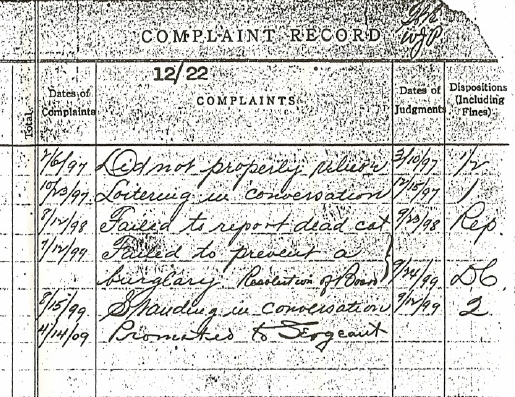 WJP
COMPLAINT RECORD
12/22
Total
Dates of Complaints
COMPLAINTS
Dates of Judgments
Dispositions (Including Fines)
7/6/97 Did not properly relieve 3/10/97 1/2
10/23/97 Loitering in conversation 12/15/97 1
8/12/98 Failed to report dead cat 9/23/98 Rep
7/12/99 Failed to prevent a
burglary Resolution of Board 9/14/99 DC
8/15/99 Standing in conversation 9/12/99 2
4/14/09 Promoted to Sergeant